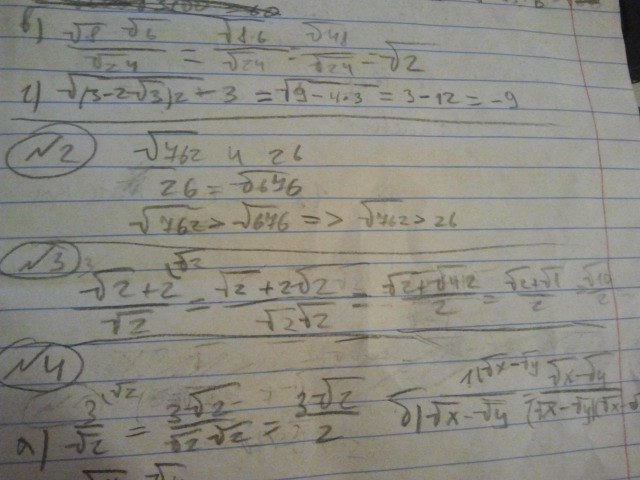 в) √8 · √6 / √24 = √8·6 / √24 = √48 / √24 = √2
г) √(3-2√3)2 + 3 = √9-4·3 = 3-12 = -9
№2 √762 и 26
26 = √676
√762 > √676 => √762 > 26
№3 (√2 + 2)(√2 / √2 = √2 + 2√2 / √2√2 = √2+√4·2 / 2 = √2+√8 / 2 = √10 / 2
№4
а) 3(√2 / √2 = 3√2 / √2·√2 = 3√2 / 2
б) 1(√x-√y / √x-√y = √x-√y / (√x-√y)(√x